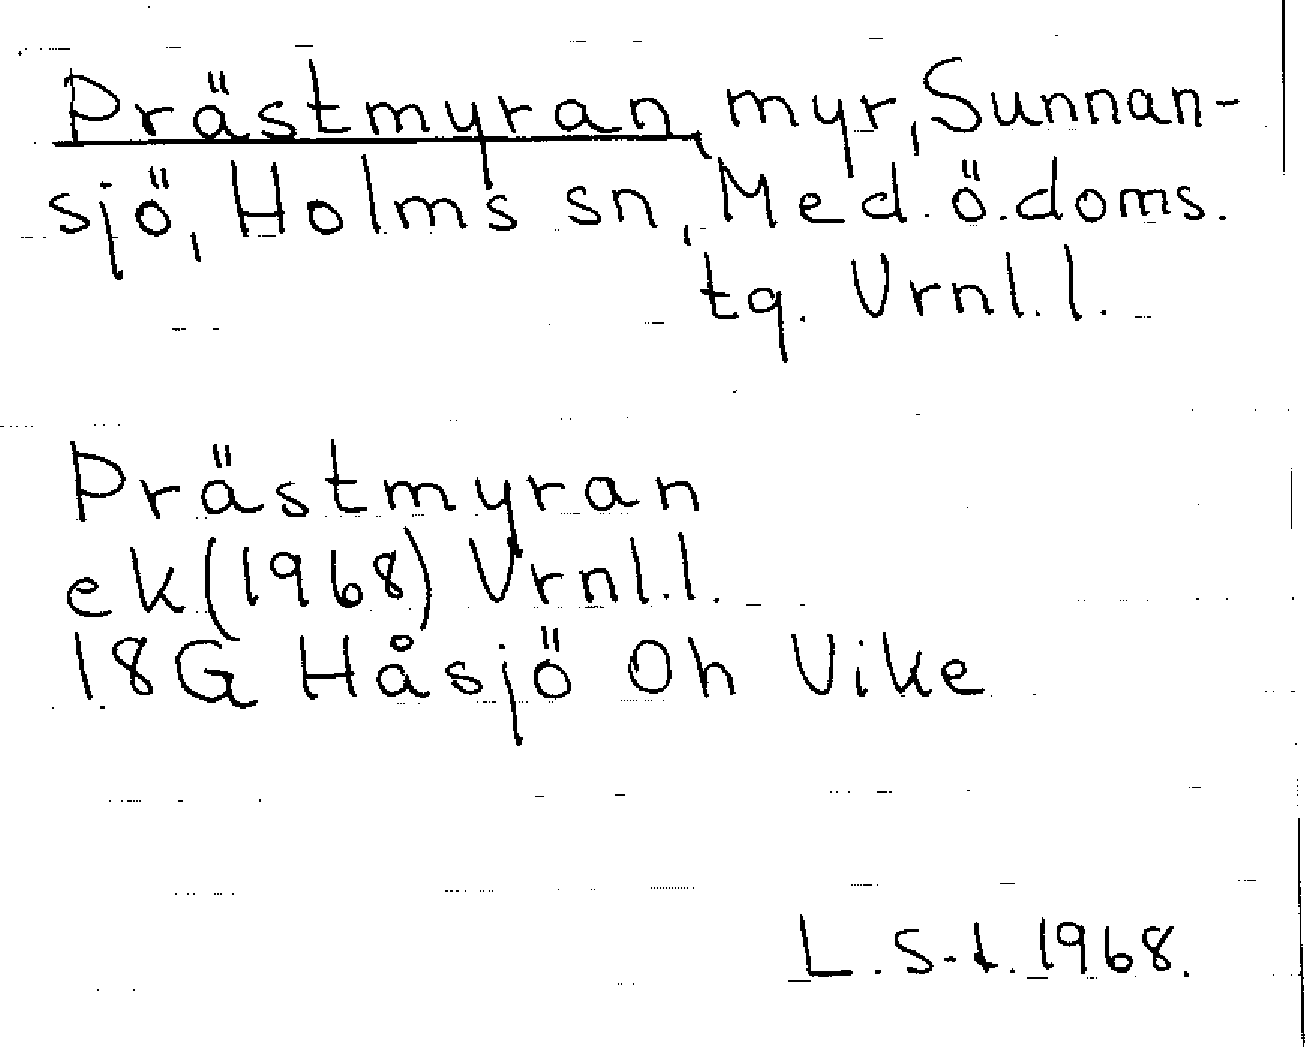 Prästmyran, myr, Sunnan-
sjö, Holms sn, Med. ö. doms.
tg. Vrnl.l.
Prästmyran
ek (1968) Vrnl.l.
18G Håsjö Oh Vike
L. S-t. 1968.